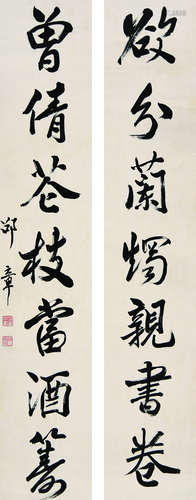 欲分蘭燭親書卷
曾倩花枝當酒籌
邵章